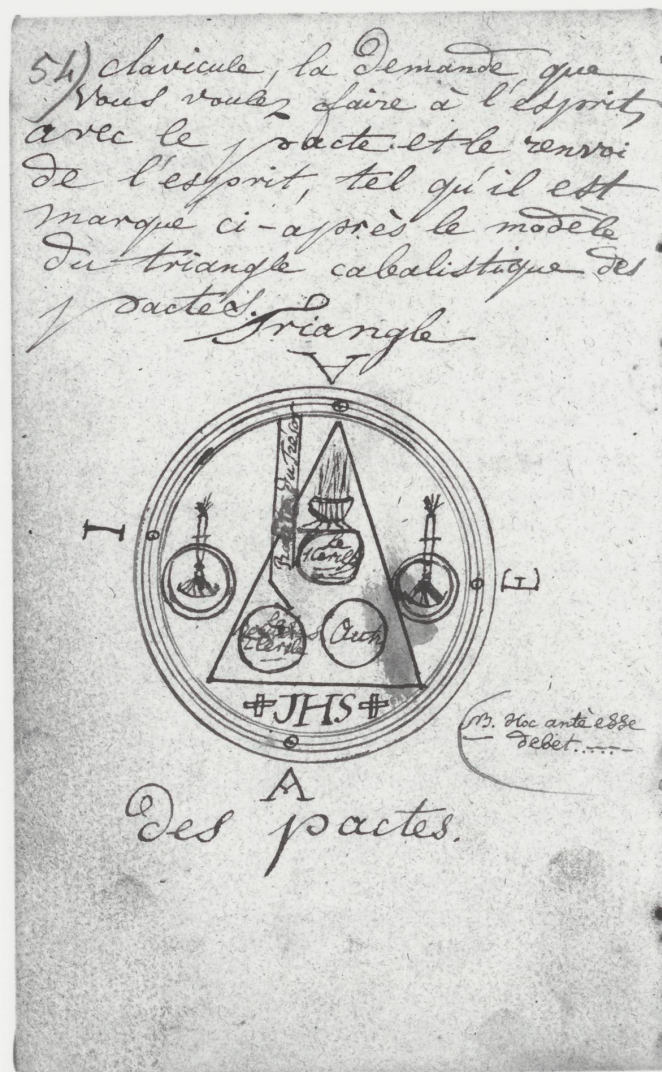 54) clavicule, la demande que
vous voulez faire à l'esprit,
avec le pacte et le renvoi
de l'esprit, tel qu'il est
marque ci-après le modèle
du triangle cabalistique des
pactes.
Triangle
A
I
E
Le
✠JHS✠
NB. Hoc antè esse
debet.....
A
Des pactes.